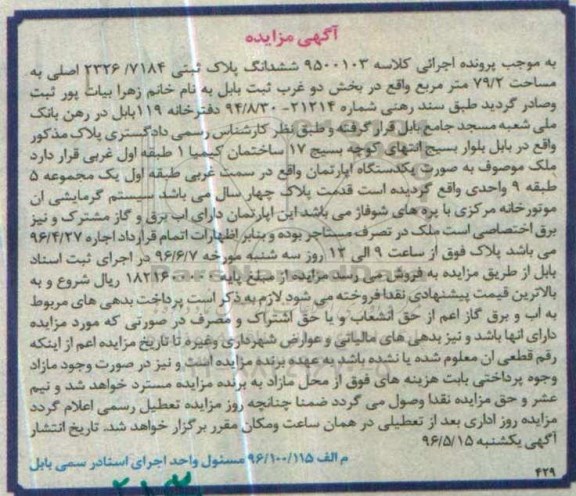 آگهی مزایده
به موجب پرونده اجرائی کلاسه ۹۵۰۰۱۰۳ ششدانگ پلاک ثبتی ۷۱۸۴/ ۲۳۲۶ اصلی به
مساحت ۷۹/۲ متر مربع واقع در بخش دو غرب ثبت بابل به نام خانم زهرا بیات پور ثبت
وصادر گردید طبق سند رهنی شماره ۲۱۲۱۴- ۹۴/۸/۳۰ دفترخانه ۱۱۹بابل در رهن بانک
ملی شعبه مسجد جامع بابل قرار گرفته و طبق نظر کارشناس رسمی دادگستری پلاک مذکور
واقع در بابل بلوار بسیج انتهای کوچه بسیج ۱۷ ساختمان کیمیا ۱ طبقه اول غربی قرار دارد
ملک موصوف به صورت یکدستگاه اپارتمان واقع در سمت غربی طبقه اول یک مجموعه ۵
طبقه ۹ واحدی واقع گردیده است قدمت پلاک چهار سال می باشد سیستم گرمایشی ان
موتورخانه مرکزی با پره های شوفاژ می باشد این اپارتمان دارای اب برق و گاز مشترک و نیز
برق اختصاصی است ملک در تصرف مستاجر بوده و بنابر اظهارات اتمام قرارداد اجاره ۹۶/۴/۲۷
می باشد پلاک فوق از ساعت ۹ الی ۱۲ روز سه شنبه مورخه ۹۶/۶/۷ در اجرای ثبت اسناد
بابل از طریق مزایده به فروش می رسد مزایده از مبلغ پایه ریال شروع و به
بالاترین قیمت پیشنهادی نقدا فروخته می شود لازم به ذکر است پرداخت بدهی های مربوط
به اب و برق گاز اعم از حق انشعاب و یا حق اشتراک و مصرف در صورتی که مورد مزایده
دارای انها باشد و نیز بدهی های مالیاتی و عوارض شهرداری وغیره تا تاریخ مزایده اعم از اینکه
رقم قطعی ان معلوم شده یا نشده باشد به عهده برنده مزایده است و نیز در صورت وجود مازاد
وجوه پرداختی بابت هزینه های فوق از محل مازاد به برنده مزایده مسترد خواهد شد و نیم
عشر و حق مزایده نقدا وصول می گردد ضمنا چنانچه روز مزایده تعطیل رسمی اعلام گردد
مزایده روز اداری بعد از تعطیلی در همان ساعت ومکان مقرر برگزار خواهد شد. تاریخ انتشار
آگهی یکشنبه ۹۶/۵/۱۵
م الف ۹۶/۱۰۰/۱۱۵ مسئول واحد اجرای اسنادر سمی بابل
۴۲۹